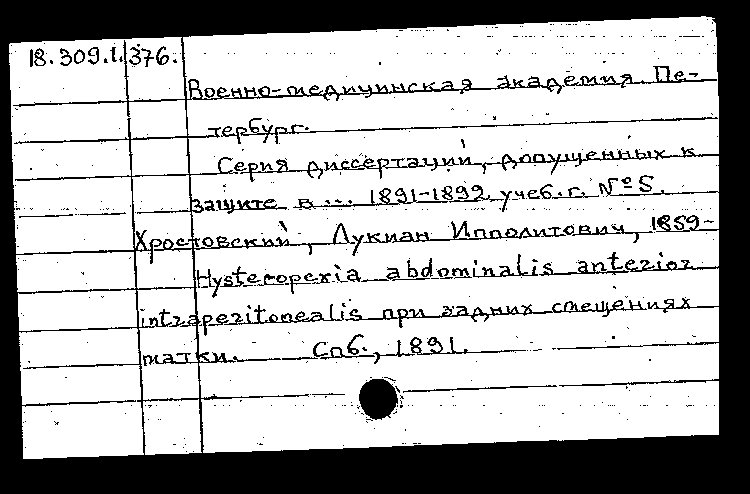 18.309.1.376.
Военно-медицинская академия. Пе-
тербург.
Серия диссертаций, допущенных к
защите в ... 1891-1892 учеб. г. №5.
Хростовский, Лукиан Ипполитович, 1859-
Hysteropexia abdominalis anterior
intraperitonealis при задних смещениях
матки. Спб., 1891.